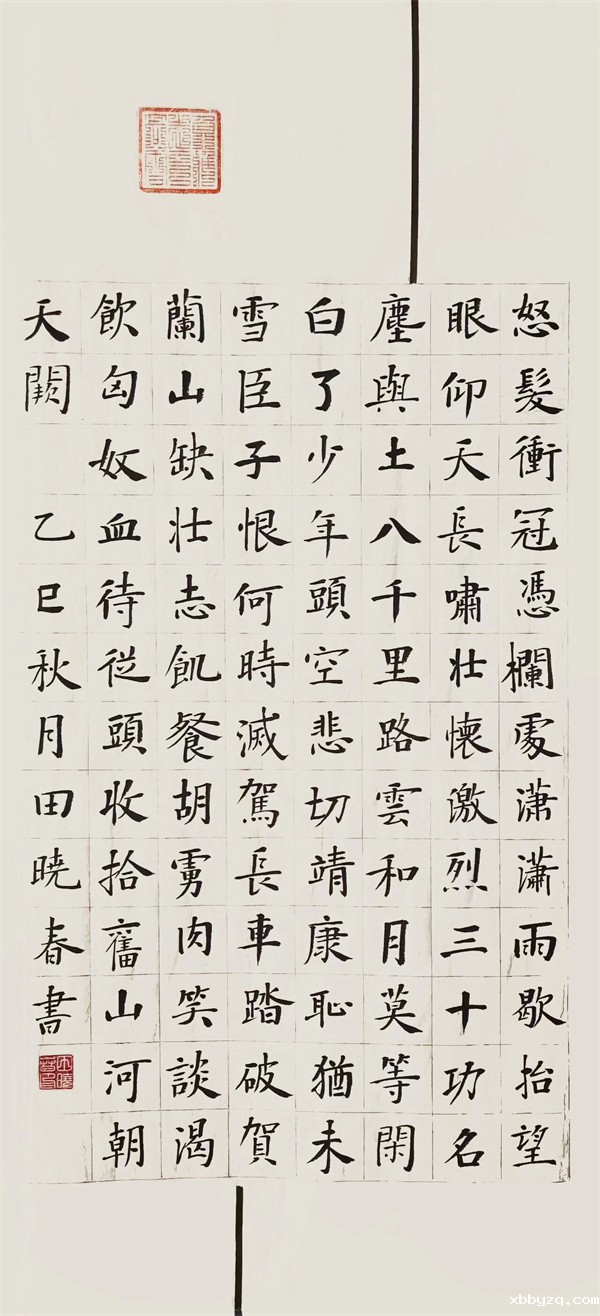 怒髮衝冠憑欄處瀟瀟雨歇抬望
眼仰天長嘯壯懷激烈三十功名
塵與土八千里路雲和月莫等閑
白了少年頭空悲切靖康恥猶未
雪臣子恨何時滅駕長車踏破賀
蘭山缺壯志飢餐胡虜肉笑談渴
飲匈奴血待從頭收拾舊山河朝
天闕 乙巳秋月田曉春書
xbbyzq.com